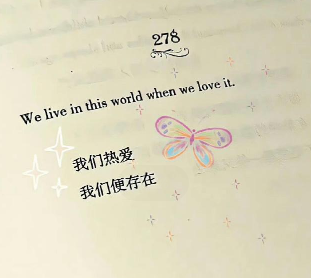 278
We live in this world when we love it.
我们热爱
我们便存在